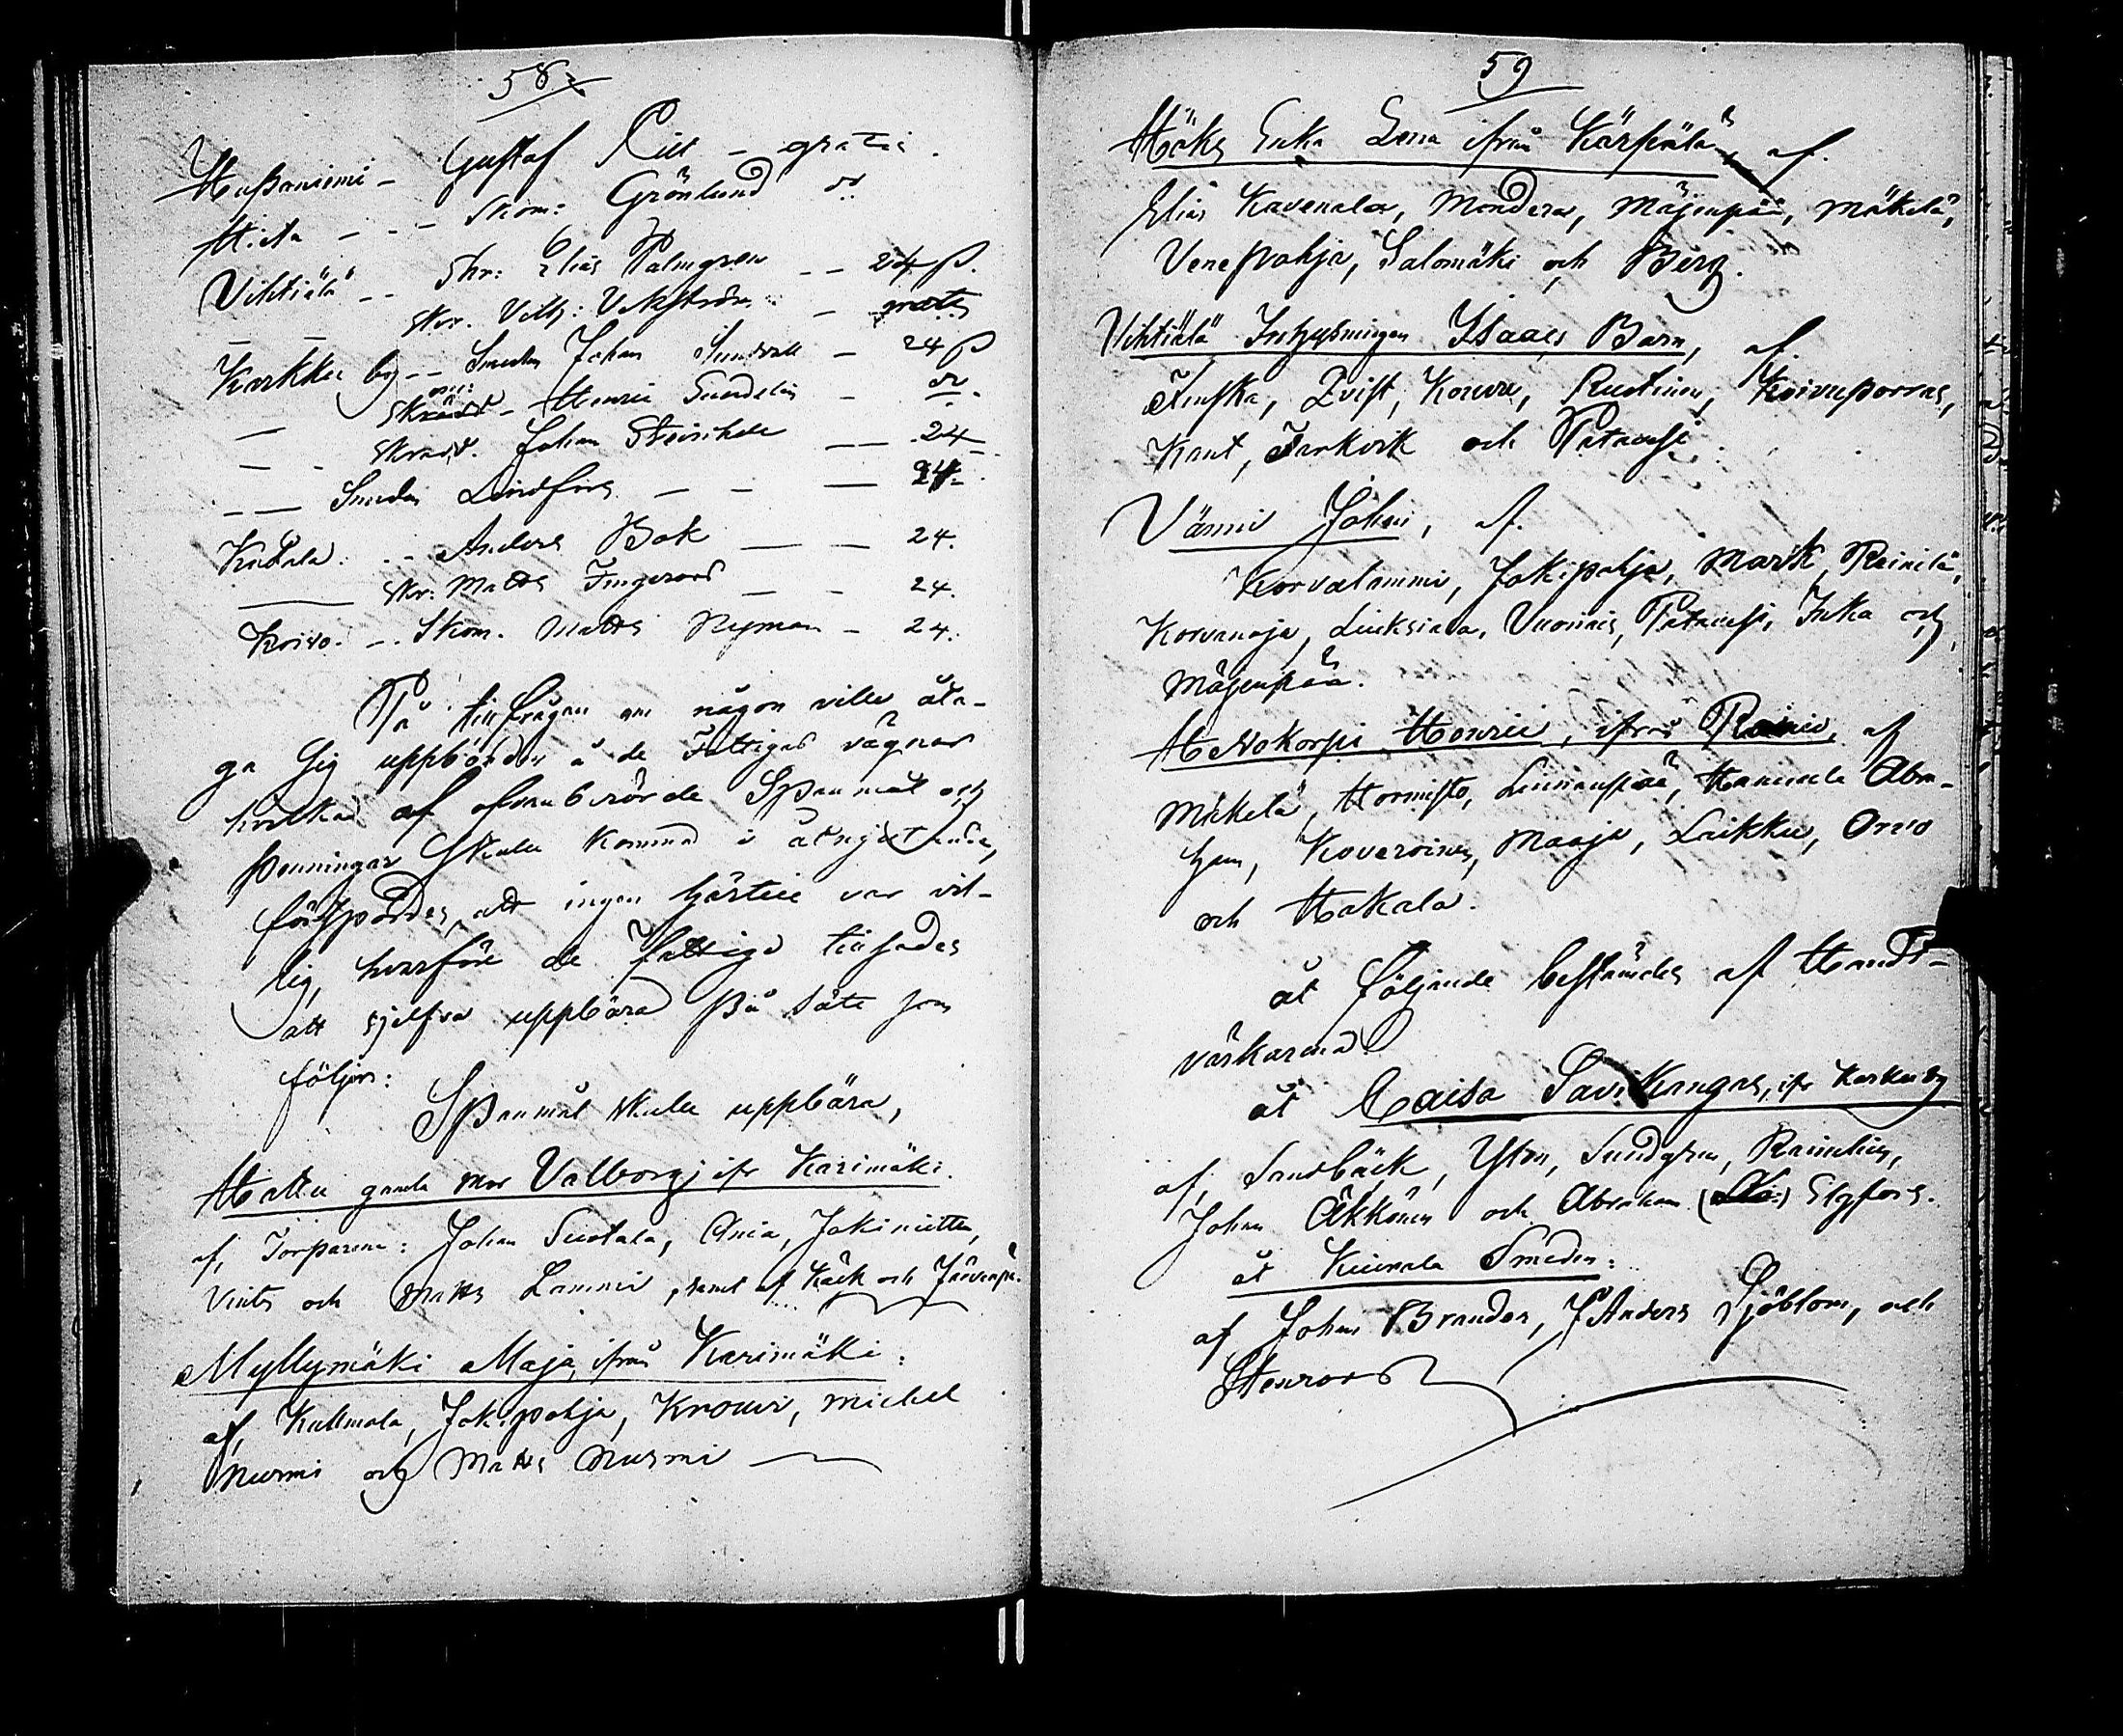 58
Huþaniemi - Gustaf Pill - gratis.
Hieta - - - Skom: Grönlund do
Vihtiälä - - Skr: Elias Palmgren - - 24 ß.
Skr. Vilh: Vikström - gratis
Karkku by - - Smeden Johan Sundvall - 24 ß
Skrädd - Henric Sundelin - do.
— - Skrädd. Johan - - 24
- — Smeden Lindfors - - — 24.
Kutala: - - Anders Bok — — 24.
— Skr: Matts Fingerord — - 24.
Koivo. - - Skom. Matts Nyman - 24.
På tillfrågan om någon ville åta-
ga sig uppbörden å de Fattigas vägnar
hvilka af ofvanberörde Spanmål och
penningar skulle komma i åtnjutande,
förspordes, att ingen härtill var vil-
lig, hvarföre de fattiga tillsades
att sjelfva uppbära på sätt som
följer:
Spanmål skulle uppbära,
Hattu gamla mor Valborg; ifr Karimäki.
af, Torparene: Johan Suotala, Ania, Jokiniitta,
Vints och Matts Lammi, samt af Käck och Järvenpä.
Myllymäki Maja, ifrån Karimäki:
af, Kullmala, Jokipohja, Krouvi, Michel
Nurmi och Matts Nurmi —
59
Höks Enka Lena ifrån Kärpälä, af.
Elias Kavenala, Mondera, Mäjenpää, Mäkelä,
Venepohja, Salomäki och Berg.
Vihtiälä Inhysningen Isaacs Barn, af.
Tuiska, Qvist, Rustinen, Koivuporras,
Knut, Jarkvik och Patanesi.
Vänni Johan, af.
Korvalammi, Jokipohja, Mark, Rainilä,
Korvanoja, Liuksiala, Vuorinis, Patanesi, Inka och
Mäjenpää.
Hevokorpi Henric, ifrån Rainio, af
Mäkelä, Hormisto, Linnanpää, Hannula Abra-
ham, Koveroinen, Maaja, Laikku, Orvo
och Hakala.
åt följande bestämdes af Handt-
värkarena
åt Caisa Savikangas, ifr Karku by
af, Sandbäck, Yston, Sundgren, Rainelius,
Johan Äkkönen och Abraham Elgfors.
åt Kiimala Smeden:
af Johan Brander, J Anders Sjöblom, och
Stenroos